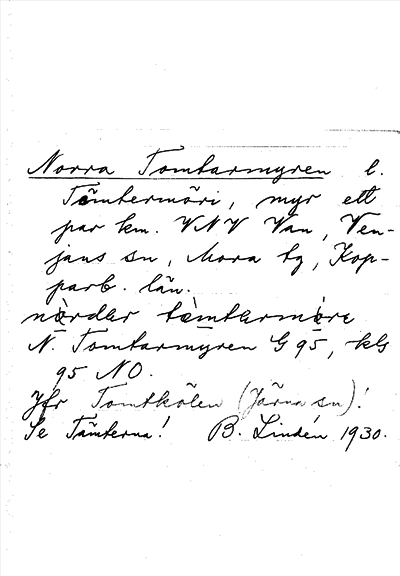 Norra Tomtarmyren l.
Tömtermöri, myr ett
par km. VNV Van, Ven-
jans sn, Mora tg, Kop-
parb. län.
nòrdər tö̀mtərmörɛ
N. Tomtarmyren G 95, kbl
95 NO.
Jfr Tomtkölen (Järna sn)!
Se Tömterna! B. Lindén 1930.